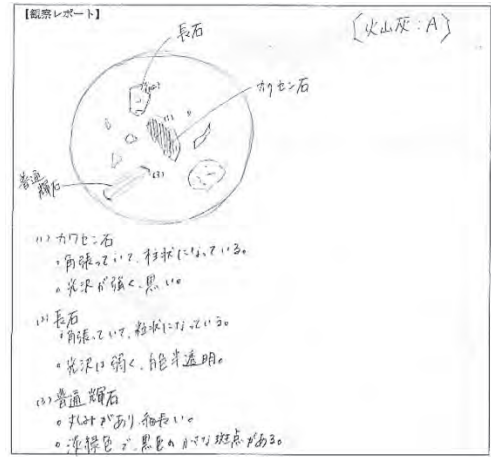 【観察レポート】
〔火山灰：A〕
長石
カクセン石
普通
輝石
(2)
(1)
(3)
(1) カクセン石
。角張っていて、柱状になっている。
。光沢が強く、黒い。
(2) 長石
。角張っていて、粒状になっている。
。光沢は弱く、白色半透明。
(3) 普通輝石
。丸みがあり、細長い。
。淡緑色で、黒色の
斑点がある。